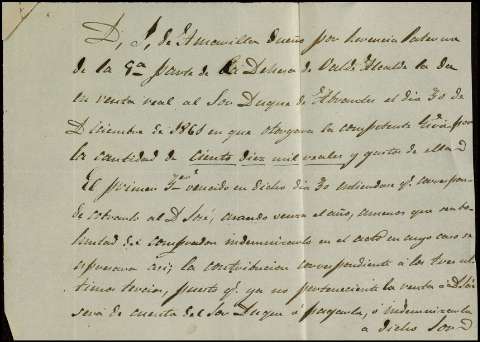 D. J. de Amarilla dueño por herencia paterna
de la 9ª parte de la Dehesa de Valde Alcalde la da
en venta real al Sor Duque de Abrantes el dia 30 de
Diciembre de 1860 en que otorgara la competente por
la cantidad de ciento diez mil reales y gastos de ella
El primer vencido en dicho dia 30 correspon-
de cobrarlo al D José, cuando venza el año, amenos que vo-
luntad del comprador indemnizarlo en el acto en cuyo caso se
espresara asi; la contribucion correspondiente á los tres ul-
timos tercios, puesto qe ya no pertenece la renta a D José
será de cuenta del Sor Duque ó pagarla, ó indemnizarla
a dicho Sor